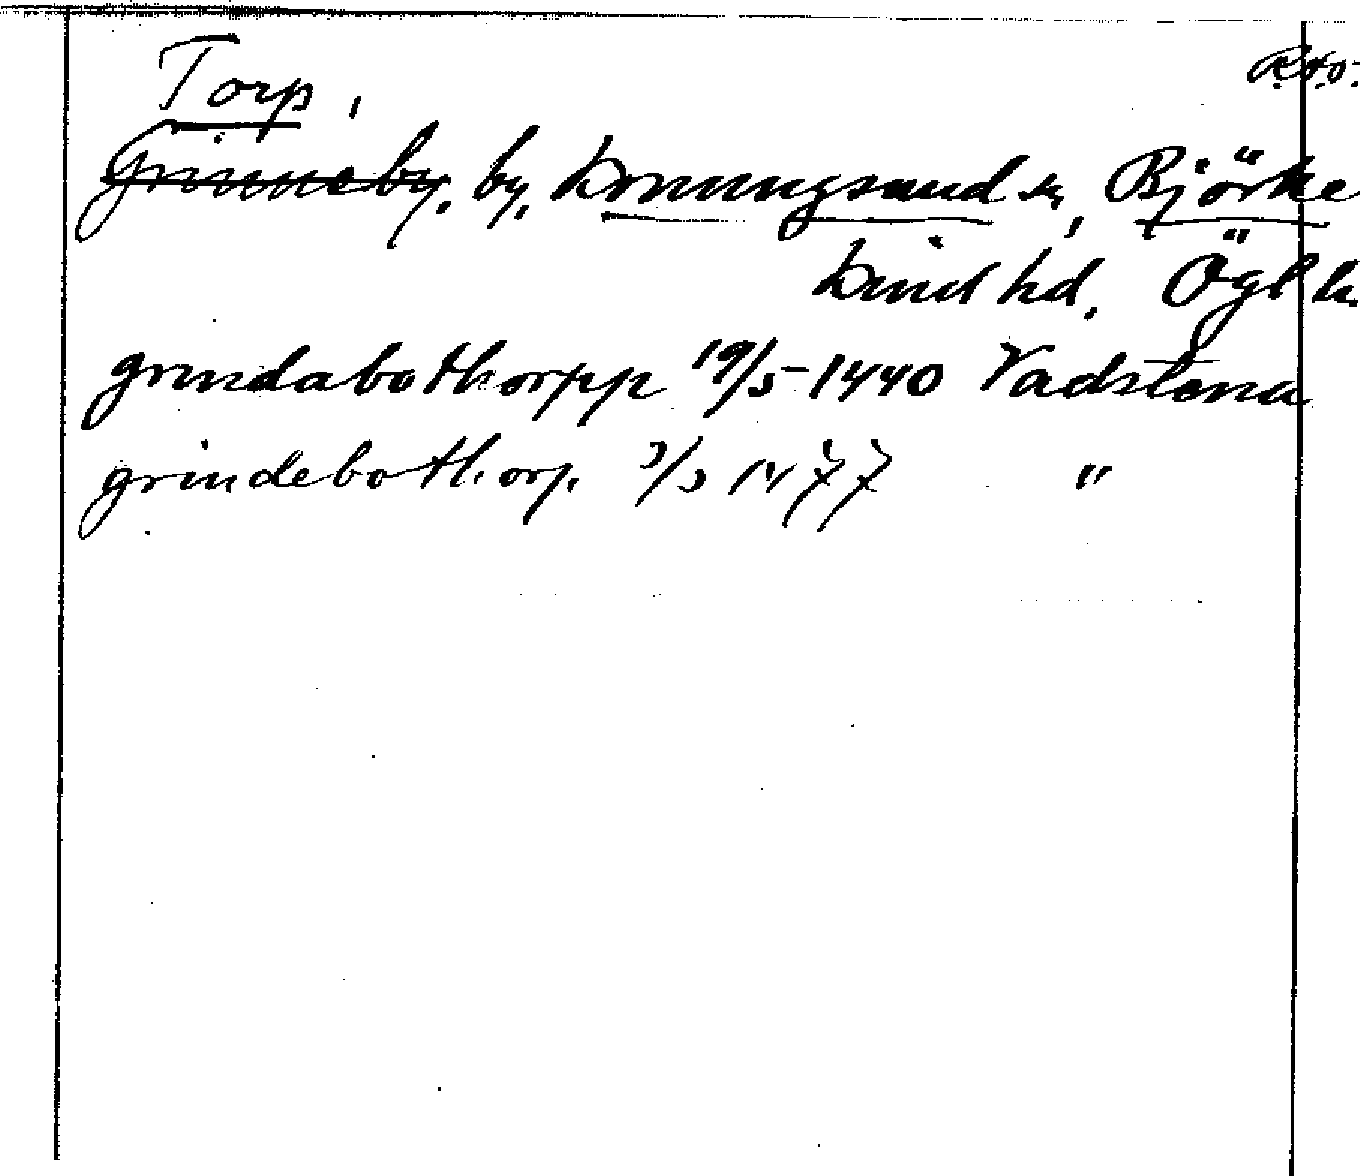 Torp, RAO.
Grinneby, by, Konungsund sn, Björke
kind hd. Ögl k.
grindabothorpp 19/5-1440 Vadstena
grindebothorp. 3/3 1477 "